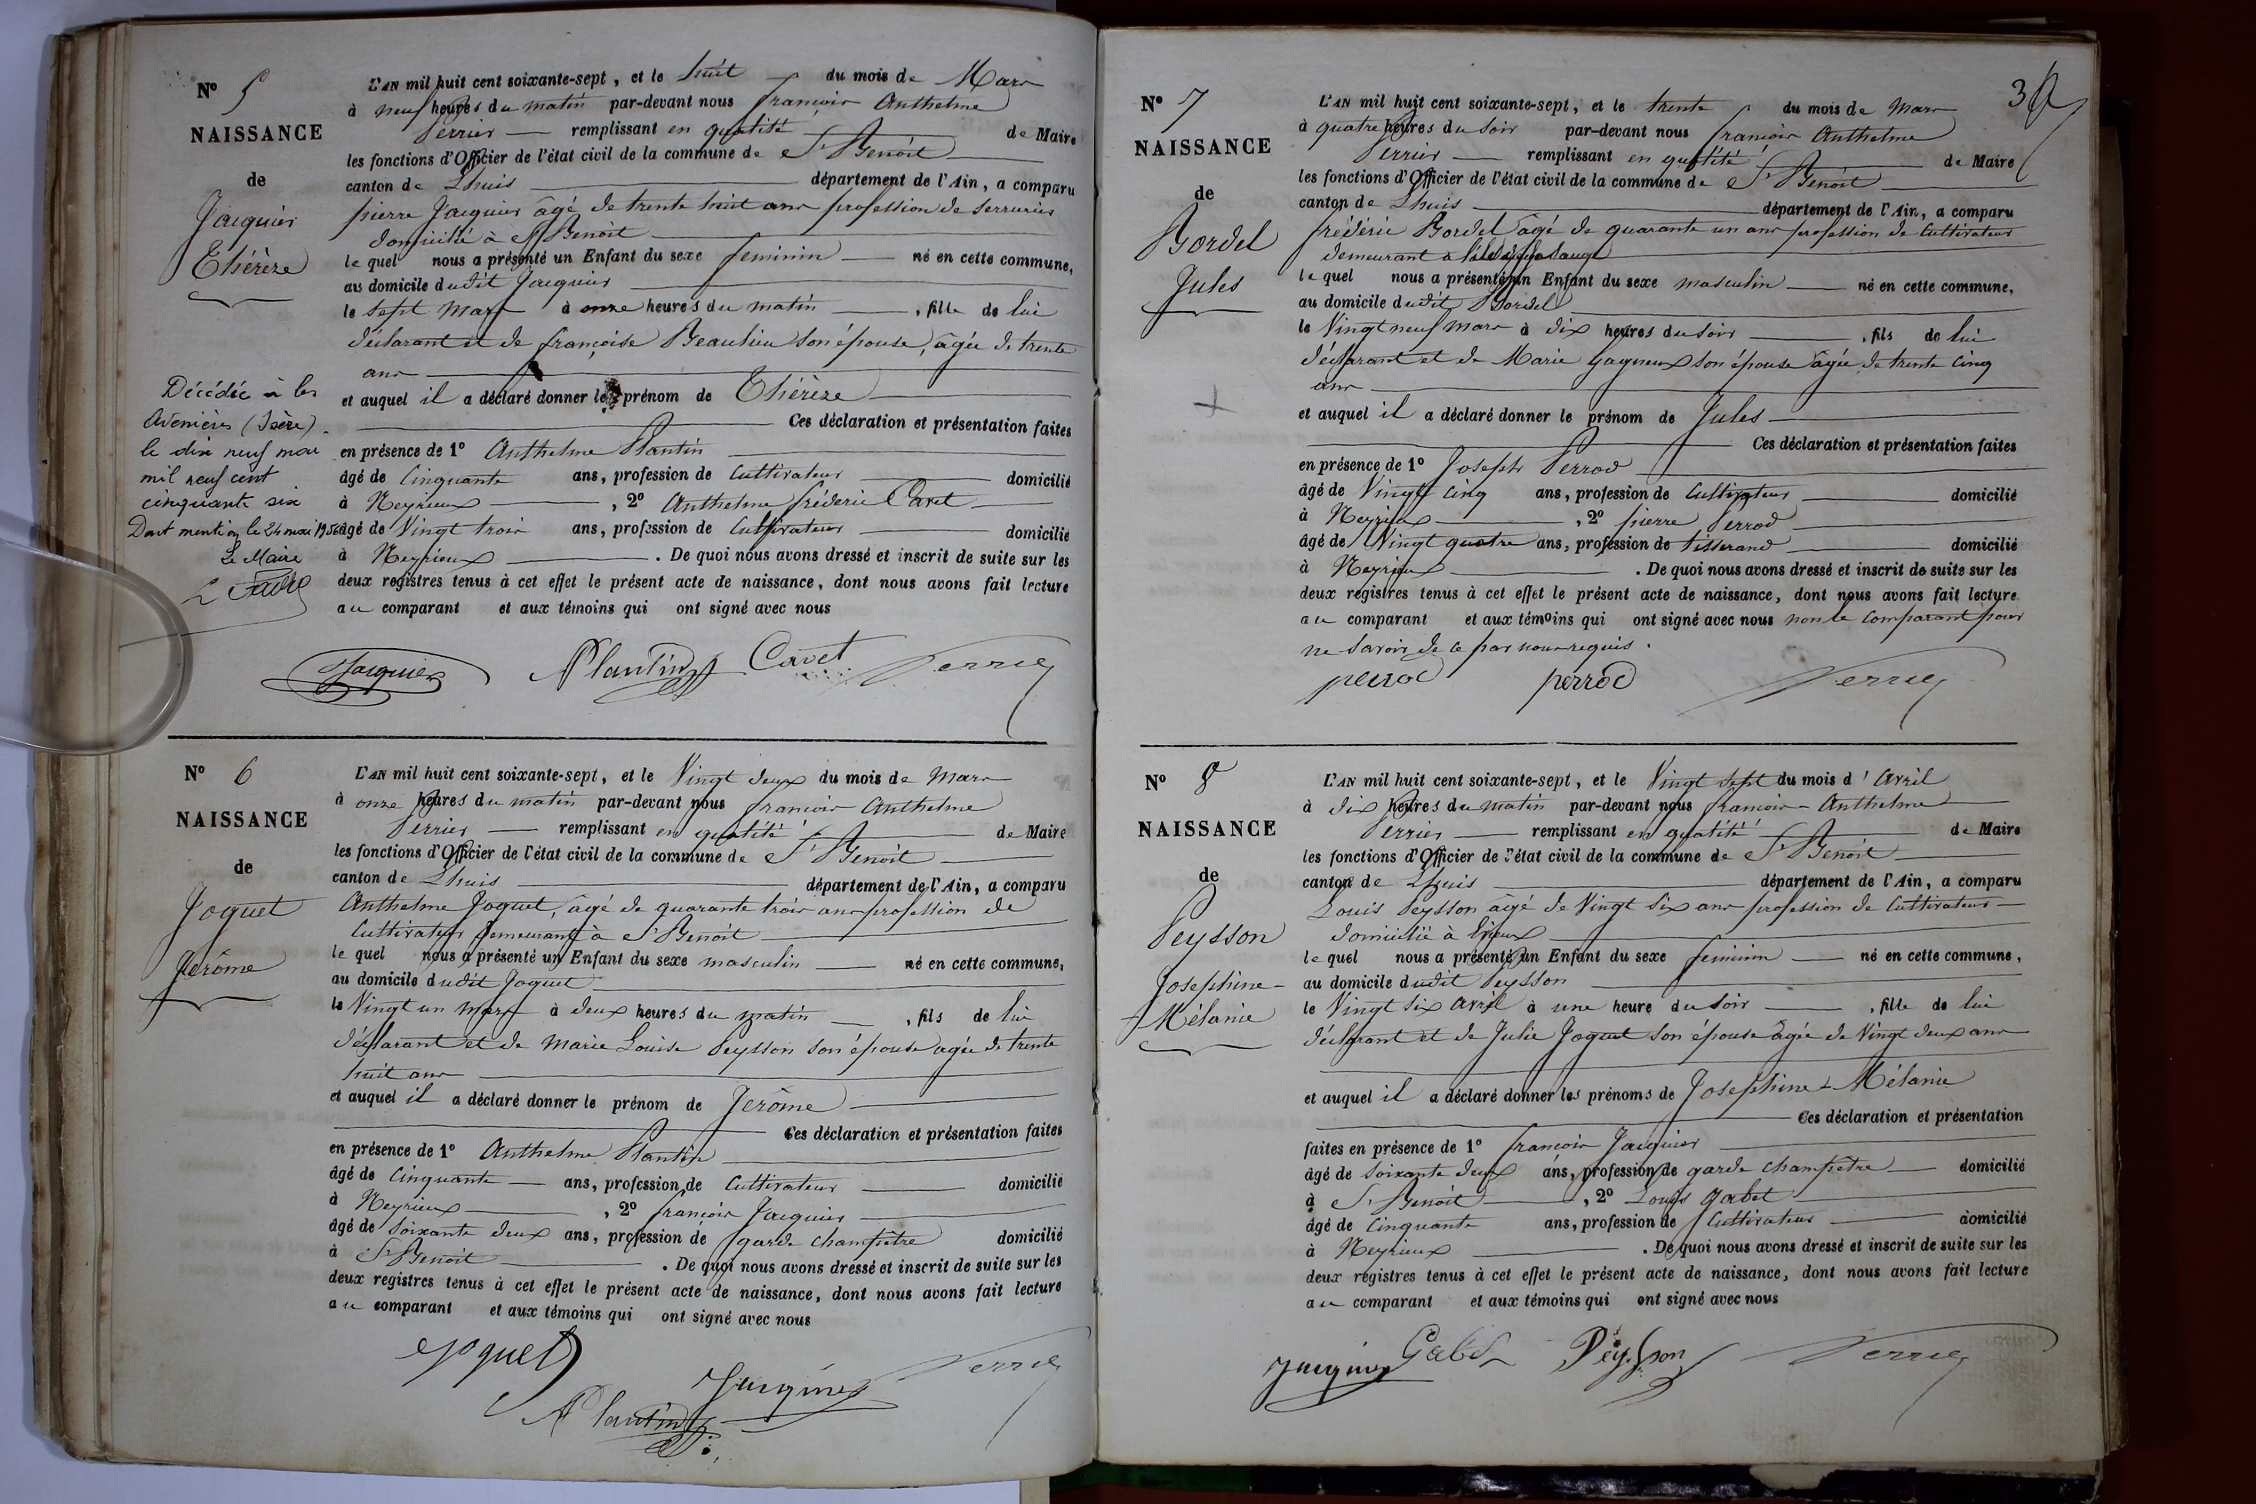 N° 5
NAISSANCE
de
Jacquier
Thérèze
L'AN mil huit cent soixante-sept, et le huit du mois de Mars
à neuf heures du matin par-devant nous françois Anthelme
Perrier remplissant en qualité de Maire
les fonctions d'Officier de l'état civil de la commune de St Benoit
canton de Lhuis département de l'Ain, a comparu
pierre Jacquier âgé de trente huit ans profession de Serrurier
domicilié à St Benoit
le quel nous a présenté un Enfant du sexe feminin né en cette commune,
au domicile dudit Jacquier
le sept mars à onze heures du matin, fille de lui
déclarant et de françoise Beaulieu son épouse, âgée de trente
ans
et auquel il a déclaré donner le prénom de Thérèze
Ces déclaration et présentation faites
en présence de 1° Anthelme Plantin
âgé de Cinquante ans, profession de Cultivateur domicilié
à Neyrieux, 2° Anthelme fréderic Cavet
âgé de Vingt trois ans, profession de Cultivateur domicilié
à Neyrieux. De quoi nous avons dressé et inscrit de suite sur les
deux registres tenus à cet effet le présent acte de naissance, dont nous avons fait lecture
au comparant et aux témoins qui ont signé avec nous
Jacquier Plantin Cavet Perrier
Décédée à les
Avenières (Isère).
le dix neuf mai
mil neuf cent
cinquante six
Dont mention le 24 mai 1956
Le Maire
N° 6
NAISSANCE
de
Joguet
Jerôme
L'AN mil huit cent soixante-sept, et le Vingt deux du mois de Mars
à onze heures du matin par-devant nous françois Anthelme
Perrier remplissant en qualité de Maire
les fonctions d'Officier de l'état civil de la commune de St Benoit
canton de Lhuis département de l'Ain, a comparu
Anthelme Joguet, âgé de quarante trois ans profession de
Cultivateur demeurant à St Benoit
le quel nous a présenté un Enfant du sexe masculin né en cette commune,
au domicile dudit Joguet
le Vingt un mars à deux heures du matin, fils de lui
déclarant et de Marie Louise Peysson son épouse agée de trente
huit ans
et auquel il a déclaré donner le prénom de Jerôme
Ces déclaration et présentation faites
en présence de 1° Anthelme Plantin
âgé de Cinquante ans, profession de Cultivateur domicilié
à Neyrieux, 2° françois Jacquier
âgé de soixante deux ans, profession de garde champetre domicilié
à St Benoit. De quoi nous avons dressé et inscrit de suite sur les
deux registres tenus à cet effet le présent acte de naissance, dont nous avons fait lecture
au comparant et aux témoins qui ont signé avec nous
Joguet Jacquier Perrier
Plantin
N° 7
NAISSANCE
de
Bordel
Jules
L'AN mil huit cent soixante-sept, et le trente du mois de Mars
à quatre heures du soir par-devant nous françois Anthelme
Perrier remplissant en qualité de Maire
les fonctions d'Officier de l'état civil de la commune de St Benoit
canton de Lhuis département de l'Ain, a comparu
fréderic Bordel âgé de quarante un ans profession de Cultivateur
demeurant à
le quel nous a présenté un Enfant du sexe masculin né en cette commune,
au domicile dudit Bordel
le Vingt neuf mars à dix heures du soir, fils de lui
déclarant et de Marie Gagneux son épouse âgée de trente Cinq
ans
et auquel il a déclaré donner le prénom de Jules
Ces déclaration et présentation faites
en présence de 1° Joseph Perrod
âgé de Vingt Cinq ans, profession de Cultivateur domicilié
à Neyrieux, 2° pierre Perrod
âgé de Vingt quatre ans, profession de tisserand domicilié
à Neyrieux. De quoi nous avons dressé et inscrit de suite sur les
deux registres tenus à cet effet le présent acte de naissance, dont nous avons fait lecture
au comparant et aux témoins qui ont signé avec nous non le Comparant pour
ne savoir de ce par nous requis.
perrod perrod Perrier
N° 8
NAISSANCE
de
Peysson
Josephine-
Mélanie
L'AN mil huit cent soixante-sept, et le Vingt sept du mois d'Avril
à dix heures du matin par-devant nous françois-Anthelme
Perrier remplissant en qualité de Maire
les fonctions d'Officier de l'état civil de la commune de St Benoit
canton de Lhuis département de l'Ain, a comparu
Louis Peysson âgé de Vingt Six ans profession de Cultivateur
domicilié à
le quel nous a présenté un Enfant du sexe feminin né en cette commune,
au domicile dudit Peysson
le Vingt Six avril à une heure du soir, fille de lui
déclarant et de Julie Joguet son épouse âgée de Vingt deux ans
et auquel il a déclaré donner les prénoms de Josephine-Mélanie
Ces déclaration et présentation
faites en présence de 1° françois Jacquier
âgé de soixante deux ans, profession de garde champetre domicilié
à St Benoit, 2° Louis Gabet
âgé de Cinquante ans, profession de Cultivateur domicilié
à Neyrieux. De quoi nous avons dressé et inscrit de suite sur les
deux registres tenus à cet effet le présent acte de naissance, dont nous avons fait lecture
au comparant et aux témoins qui ont signé avec nous
Jacquier Gabet Peysson Perrier